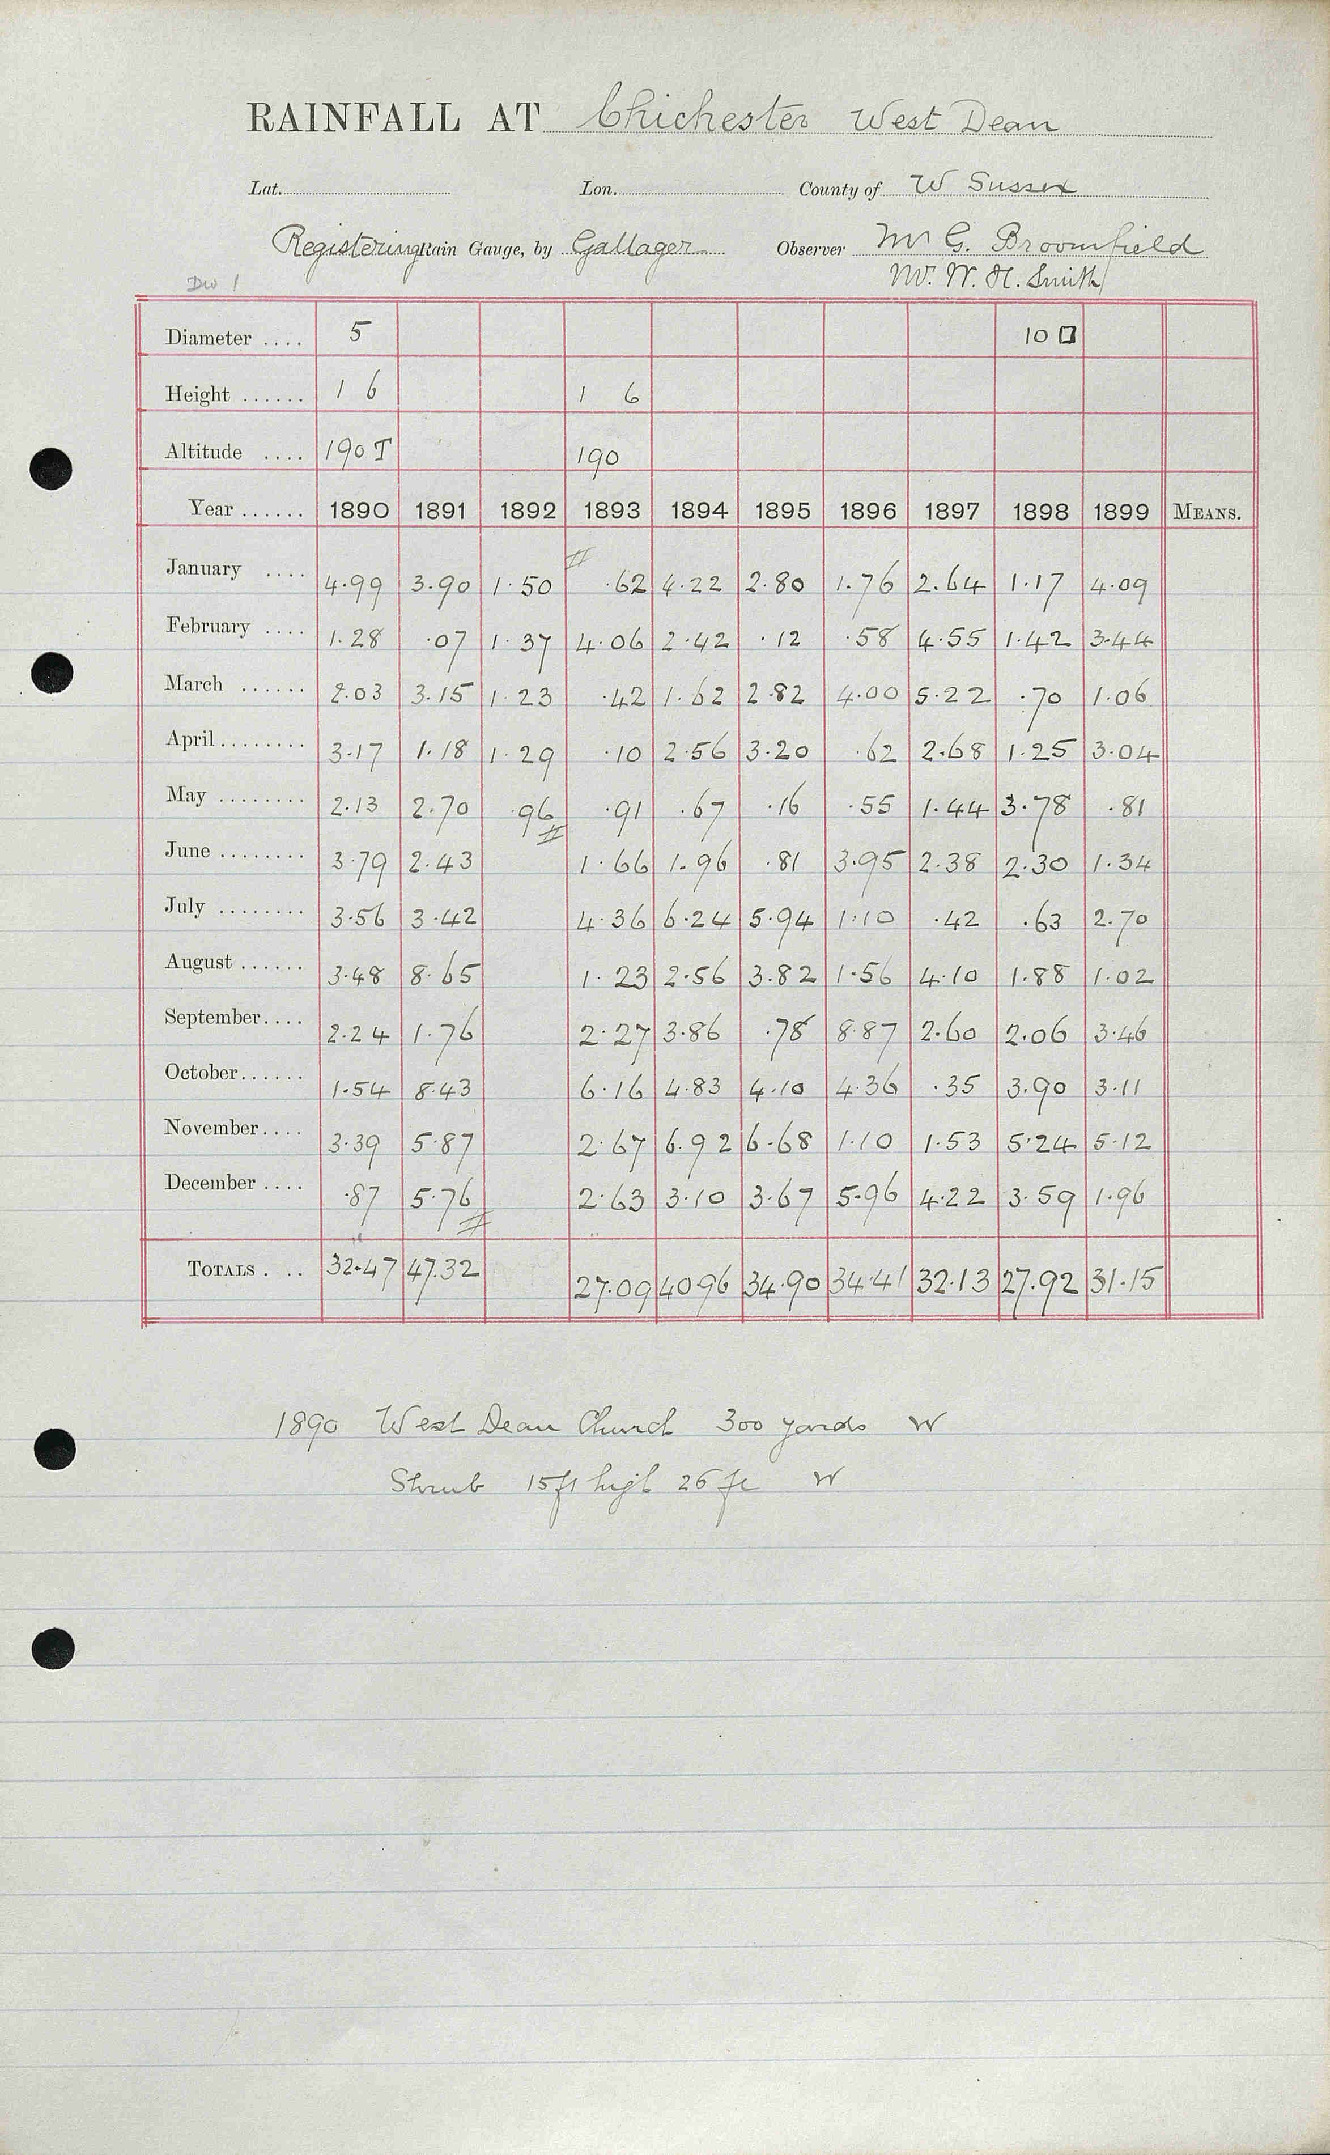 RAINFALL AT Chichester West Dean
Lat. Lon. County of W Sussex
Registering Rain Gauge, by Gallager Observer Mr G. Broomfield
Mr. W. H. Smith
DW 1
Diameter .... 5 10 □
Height ...... 1 6 1 6
Altitude .... 190 T 190
Year ...... 1890 1891 1892 1893 1894 1895 1896 1897 1898 1899 MEANS.
January .... 4.99 3.90 1.50 .62 4.22 2.80 1.76 2.64 1.17 4.09
February .... 1.28 .07 1.37 4.06 2.42 .12 .58 4.55 1.42 3.44
March ...... 2.03 3.15 1.23 .42 1.62 2.82 4.00 5.22 .70 1.06
April ........ 3.17 1.18 1.29 .10 2.56 3.20 .62 2.68 1.25 3.04
May ........ 2.13 2.70 .96 .91 .67 .16 .55 1.44 3.78 .81
June ........ 3.79 2.43 1.66 1.96 .81 3.95 2.38 2.30 1.34
July ........ 3.56 3.42 4.36 6.24 5.94 1.10 .42 .63 2.70
August ...... 3.48 8.65 1.23 2.56 3.82 1.56 4.10 1.88 1.02
September.... 2.24 1.76 2.27 3.86 .78 8.87 2.60 2.06 3.46
October...... 1.54 8.43 6.16 4.83 4.10 4.36 .35 3.90 3.11
November.... 3.39 5.87 2.67 6.92 6.68 1.10 1.53 5.24 5.12
December .... .87 5.76 2.63 3.10 3.67 5.96 4.22 3.59 1.96
TOTALS . .. 32.47 47.32 27.09 40.96 34.90 34.41 32.13 27.92 31.15
1890 West Dean Church 300 yards W
Shrub 15ft high 26 ft W